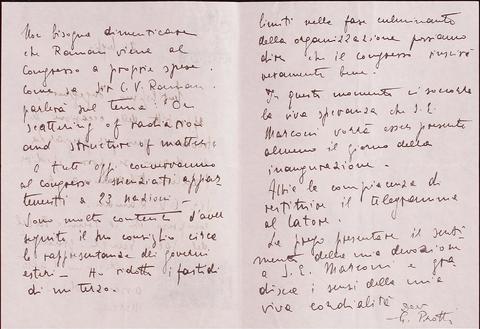 Non bisogna dimenticare
che Raman viene al
Congresso a proprie spese.
Come sa Sir C. V. Raman
parlerà sul tema "On
scattering of radiation
and structure of matter".
A tutt'oggi converranno
al congresso scienziati appar
tenenti a 23 nazioni –
Sono molto contento d'aver
seguito il suo consiglio circa
le rappresentanze dei governi
esteri – Ha ridotti i fastidi
di un terzo.
limiti nella fase culminante
della organizzazione possiamo
dire che il congresso riuscirà
veramente bene.
In questo momento ci soccorre
la viva speranza che S. E.
Marconi vorrà esser presente
almeno il giorno della
inaugurazione.
Abbia la compiacenza di
restituire il telegramma
al latore.
La prego presentare i senti
menti della mia devozione
a S. E. Marconi e gra
disca i sensi della mia
viva cordialità
G. Protti